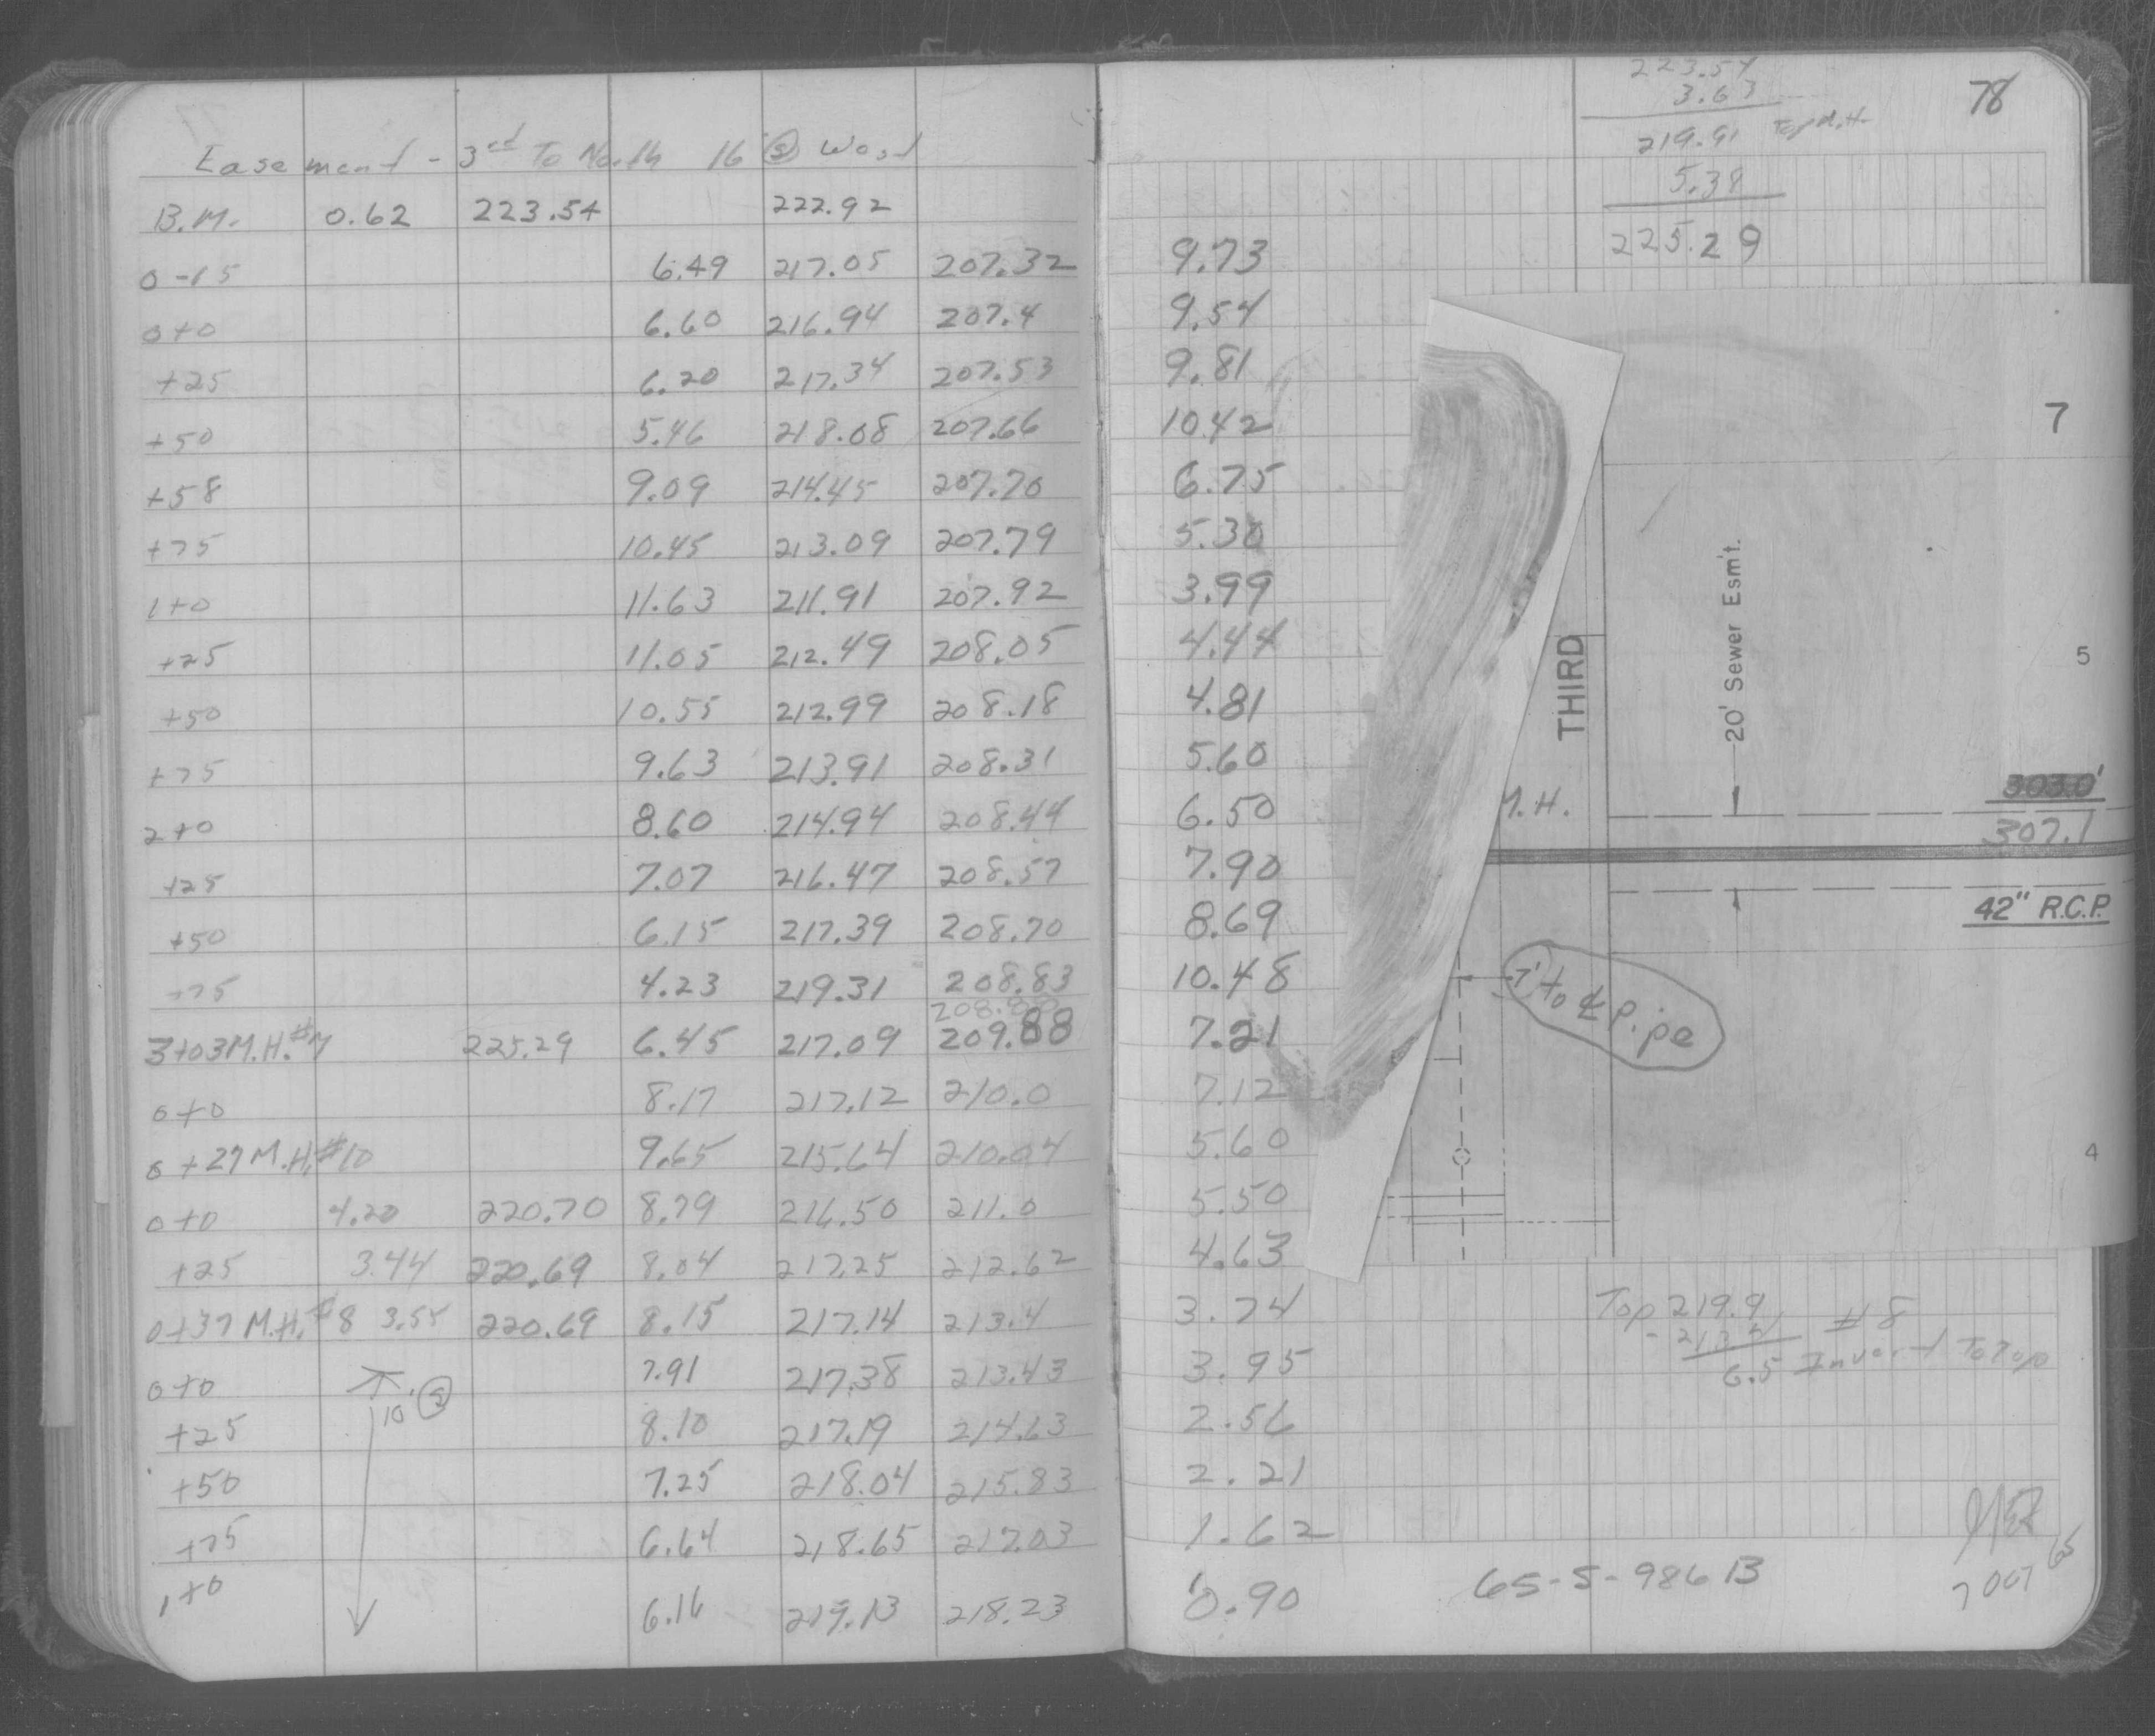 Easement - 3rd To North 16 Ⓢ West
B.M. 0.62 223.54 222.92
0-15 6.49 217.05 207.32 9.73
0+0 6.60 216.94 207.4 9.54
+25 6.20 217.34 207.53 9.81
+50 5.46 218.08 207.66 10.42
+58 9.09 214.45 207.70 6.75
+75 10.45 213.09 207.79 5.30
1+0 11.63 211.91 207.92 3.99
+25 11.05 212.49 208.05 4.44
+50 10.55 212.99 208.18 4.81
+75 9.63 213.91 208.31 5.60
2+0 8.60 214.94 208.44 6.50
+25 7.07 216.47 208.57 7.90
+50 6.15 217.39 208.70 8.69
+75 4.23 219.31 208.83 10.48
3+03 M.H. 225.29 6.45 217.09 209.88 7.21
0+0 8.17 217.12 210.0 7.12
0+27 M.H. #10 9.65 215.64 210.04 5.60
0+0 4.20 220.70 8.79 216.50 211.0 5.50
+25 3.44 220.69 8.04 217.25 212.62 4.63
0+37 M.H. #8 3.55 220.69 8.15 217.14 213.4 3.74
0+0 7.91 217.38 213.43 3.95
10' Ⓢ
+25 8.10 217.19 214.63 2.56
+50 7.25 218.04 215.83 2.21
+75 6.64 218.65 217.03 1.62
1+0 6.16 219.13 218.23 0.90
78
223.54
3.63
219.91 Top M.H.
5.38
225.29
7
THIRD
20' Sewer Esm't.
5
303.0'
307.1
M.H.
42" R.C.P.
7' to ℄ Pipe
4
Top 219.9 #8
- 213.4
6.5 Invert To Top
65-5-986 B
7 OCT 65